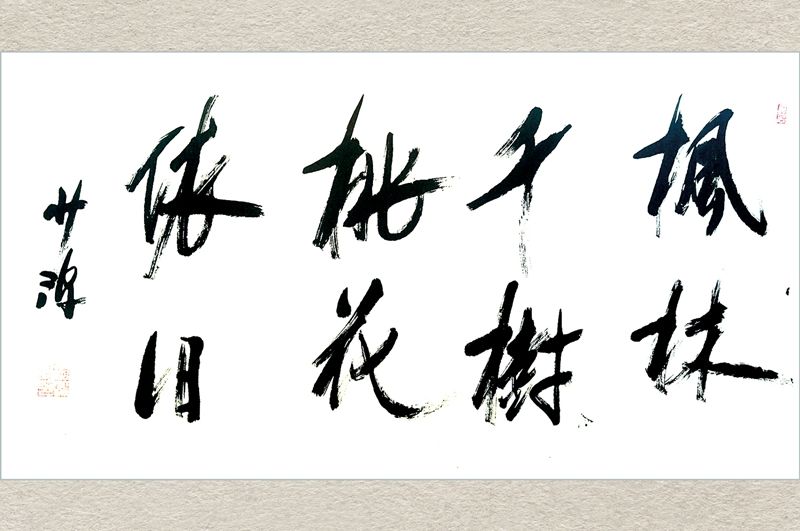 楓林
千樹
桃花
依旧